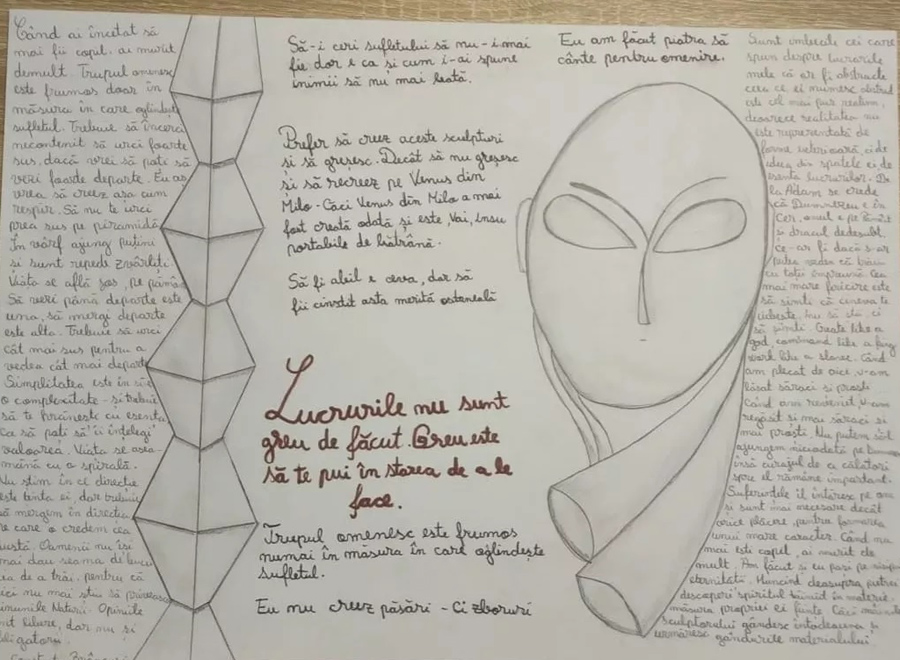 Când ai încetat să
mai fii copil, ai murit
demult. Trupul omenesc
este frumos doar în
măsura în care oglindește
sufletul. Trebuie să încerci
necontenit să urci foarte
sus, dacă vrei să poți să
vezi foarte departe. Eu aș
vrea să creez așa cum
respir. Să nu te urci
prea sus pe piramidă
În vârf ajung puțini
și sunt repede zvârliți.
Viața se află jos, pe pământ
Să vezi până departe este
una, să mergi departe
este alta. Trebuie să urci
cât mai sus pentru a
vedea cât mai departe
Simplitatea este în sine
o complexitate - și trebuie
să te hrănești cu esența
ca să poți să îi înțelegi
valoarea. Viața se asea-
mănă cu o spirală.
Nu știm în ce direcție
este ținta ei, dar trebuie
să mergem în direcția
pe care o credem cea
justă. Oamenii nu își
mai dau seama de bucu
ia de a trăi, pentru că
ici nu mai știu să privească
minunile Naturii. Opiniile
sunt libere, dar nu și
obligatorii
Să-i ceri sufletului să nu-i mai
fie dor e ca și cum i-ai spune
inimii să nu mai bată.
Prefer să creez aceste sculpturi
și să greșesc. Decât să nu greșesc
și să recreez pe Venus din
Milo - Căci Venus din Milo a mai
fost creată odată și este, vai, insu
portabile de bătrână.
Să fii abil e ceva, dar să
fii cinstit asta merită osteneală
Lucrurile nu sunt
greu de făcut. Greu este
să te pui în starea de a le
face.
Trupul omenesc este frumos
numai în masura în care oglindește
sufletul.
Eu nu creez păsări - Ci zboruri
Eu am făcut piatra să
cânte pentru omenire.
Sunt imbecile cei care
spun despre lucrările
mele că ar fi abstracte
ceea ce ei numesc abstract
este cel mai pur realism,
deoarece realitatea nu
este reprezentată de
forma exterioară, ci de
ideea din spatele ei, de
esența lucrurilor. De
la Adam se crede
că Dumnezeu e în
Cer, omul e pe
și dracul dedesubt.
Ce-ar fi dacă s-ar
putea vedea că trăim
cu toții împreună. Cea
mai mare fericire este
să simți că cineva te
iubește. Create like a
god, command like a king
work like a slave. Când
am plecat de aici, v-am
lăsat săraci și proști
Când am revenit, v-am
regăsit și mai săraci și
mai proști. Nu putem să
ajungem niciodată pe
însă curajul de a călători
spre el rămâne important.
Suferințele îl întăresc pe om
și sunt mai necesare decât
orice plăcere, pentru formarea
unui mare caracter. Când nu
mai ești copil, ai murit de
mult. Am făcut și eu pași pe nisipul
eternității. Muncind deasupra pietrei
descoperi spiritul în materie
măsura propriei ei ființe. Căci mâna
sculptorului gândesc întotdeauna și
urmăresc gândurile materialului